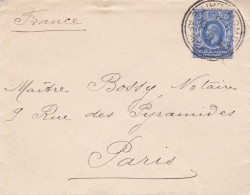 France
Maître Bossy, Notaire
9 Rue des Pyramides
Paris